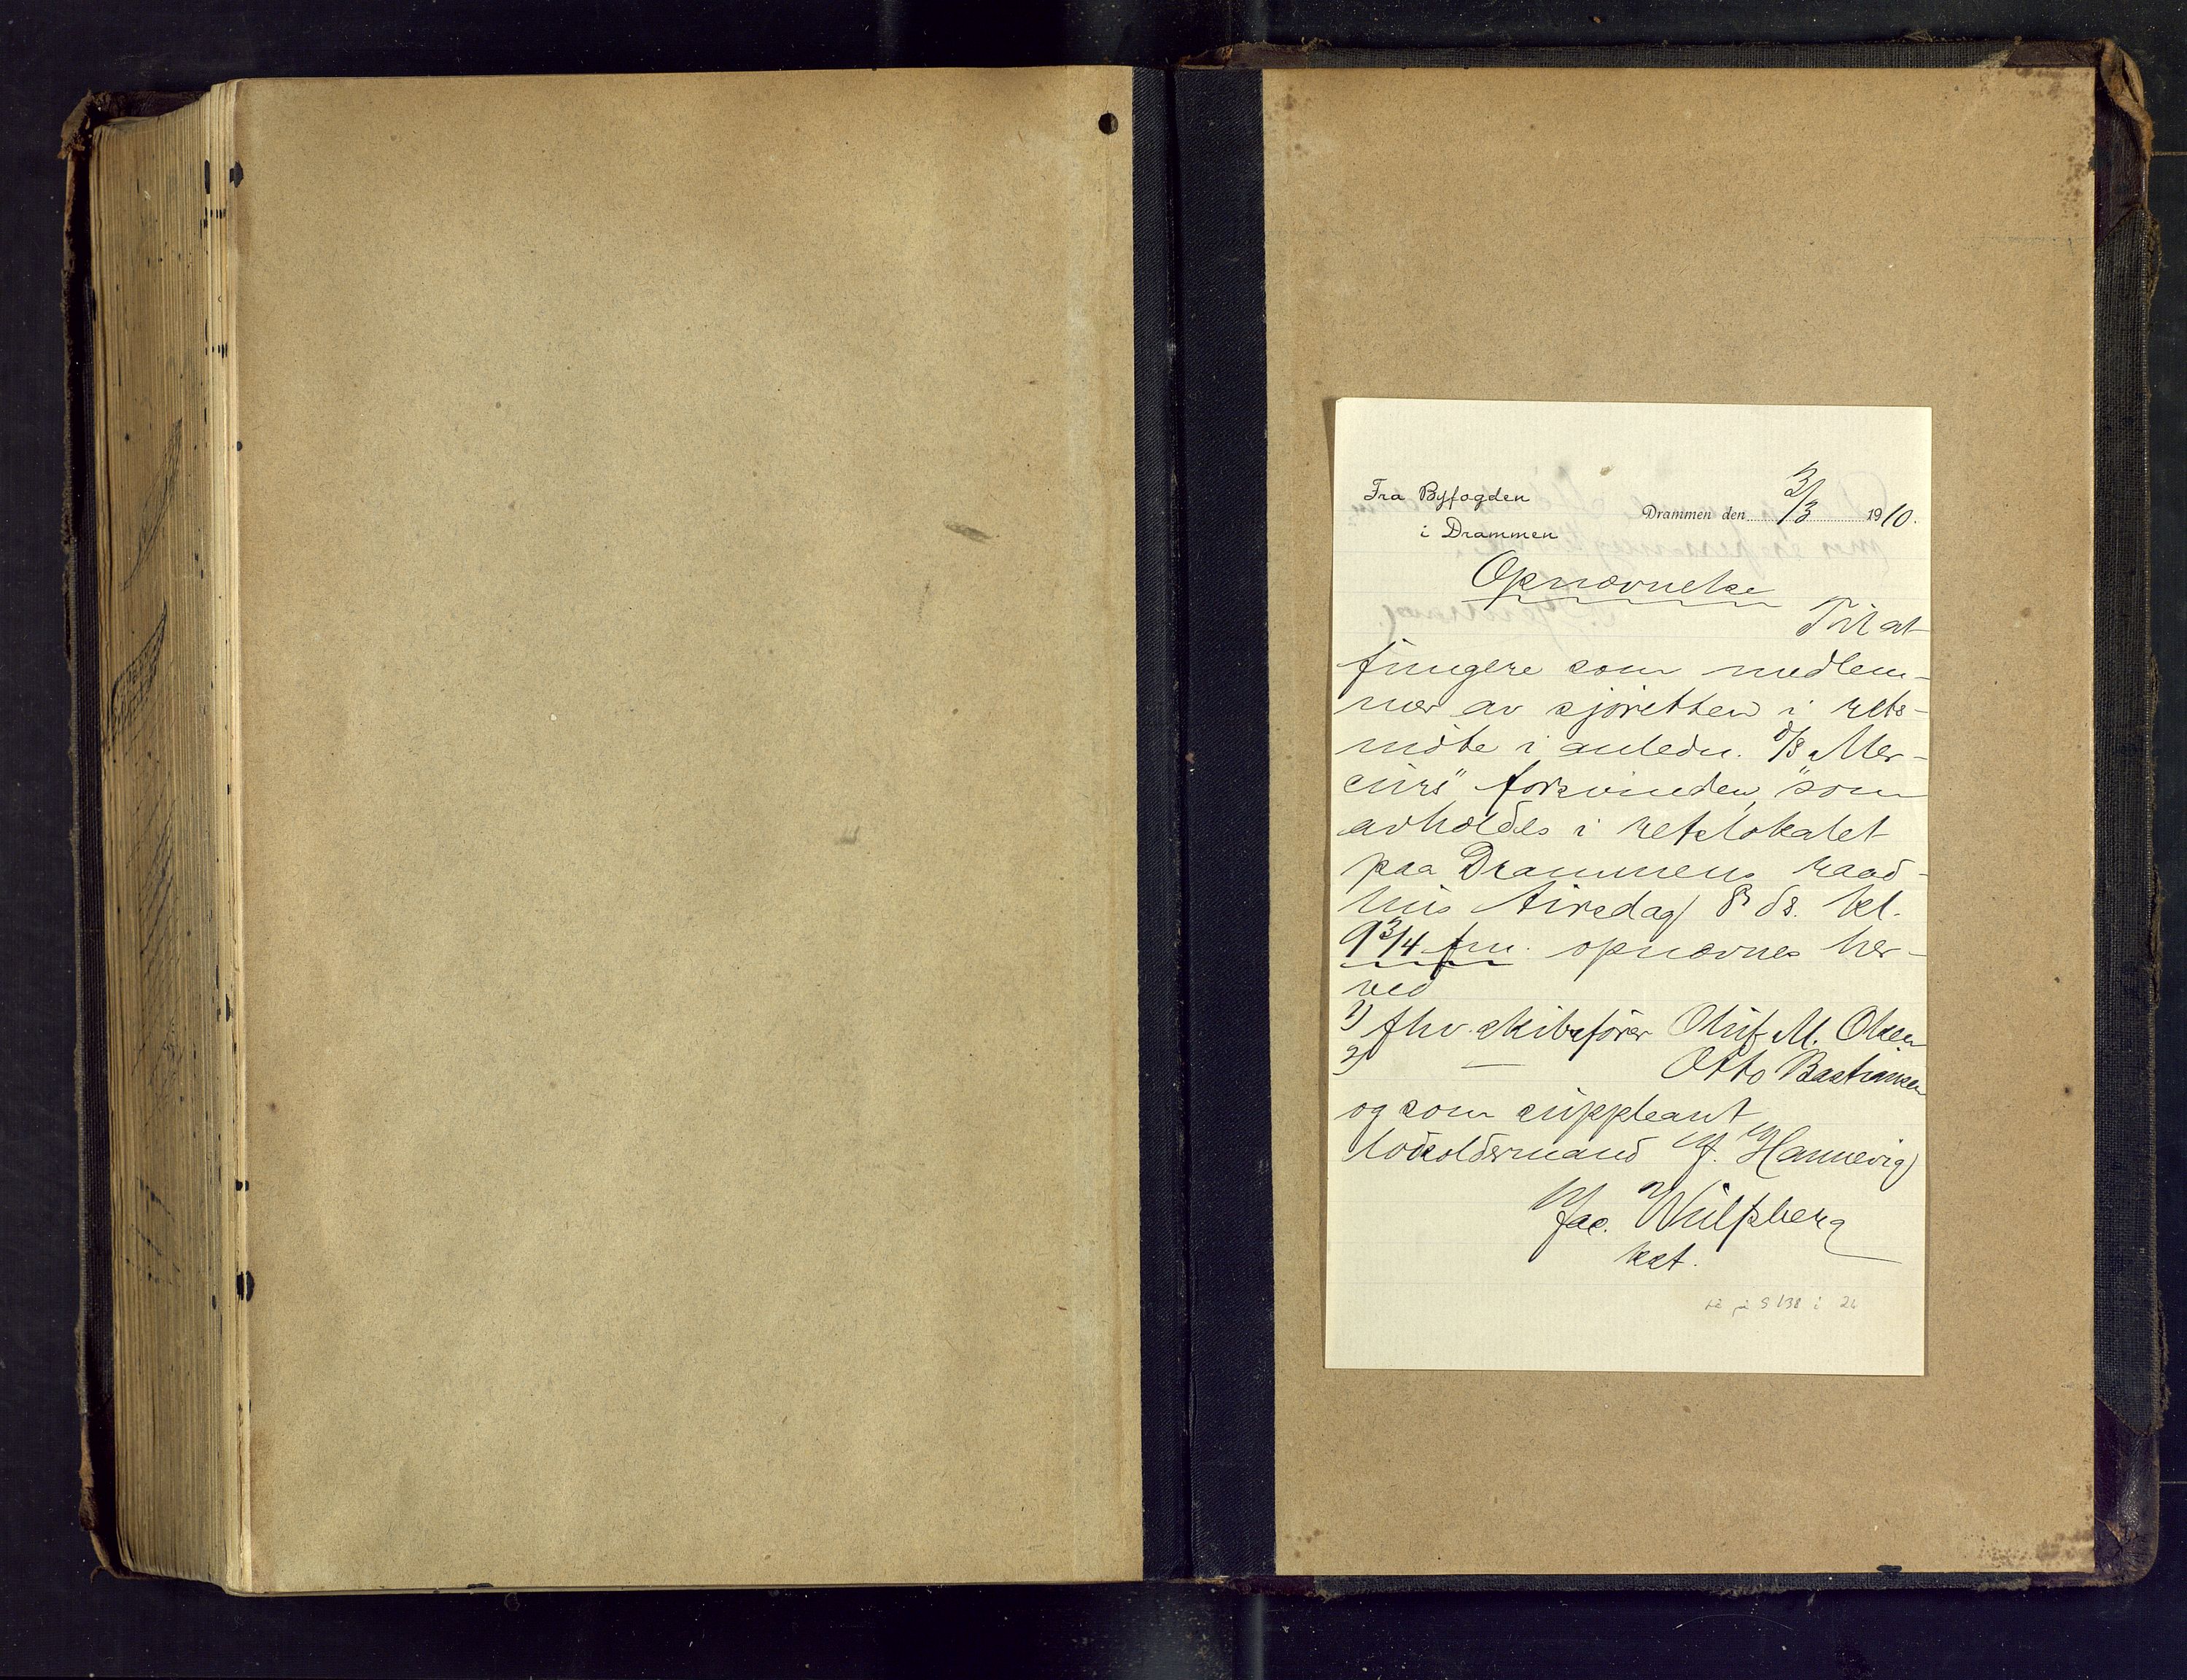 Fra Byfogden
i Drammen
Drammen den 3/3 1910.
Opnævnelse
Til at
fungere som medlem-
mer av sjøretten i rets-
møte i anledn. d/s "Mer-
curs" "forsvinden", som
avholdes i retslokalet
paa Drammens raad-
hus tirsdag 8 ds. kl.
9 3/4 fm. opnævnes her-
ved
1) fhv. skibsfører Oluf M. Olsen
2) — Otto Bastiansen
og som suppleant
lodsoldermand J. Hannevig
Jac. Wulfsberg
kst.